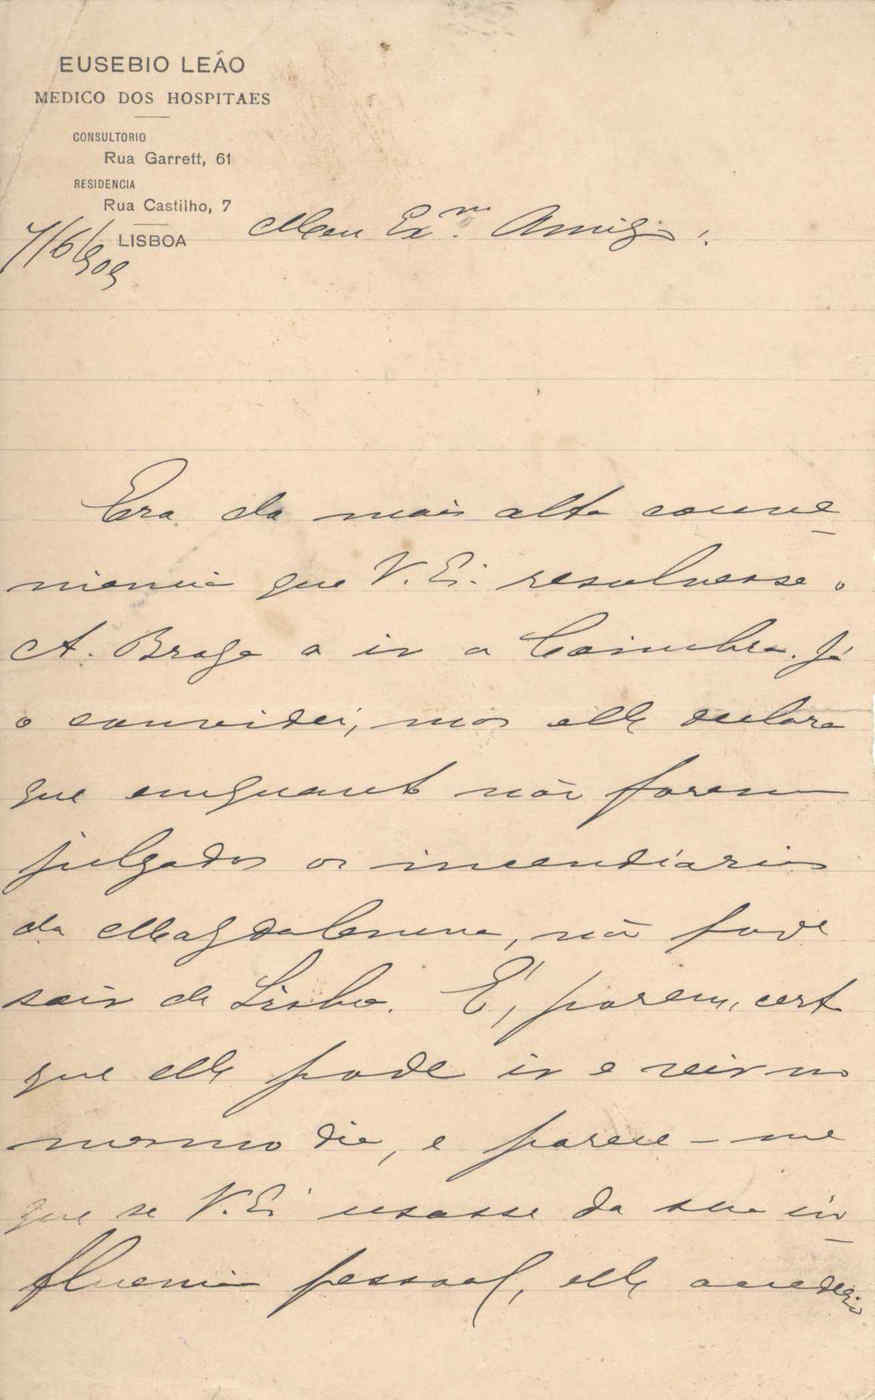 EUSEBIO LEÃO
MEDICO DOS HOSPITAES
CONSULTORIO
Rua Garrett, 61
RESIDENCIA
Rua Castilho, 7
LISBOA
7/6/909
Meu Exmo. Amigo:
Era da mais alta conve-
niencia que V. Ex. resolvesse o
A. Braga a ir a Coimbra. Já
o convidei, mas elle declara
que emquanto não forem
julgados os incendiarios
da Magdalena, não pode
sair de Lisboa. É, porem, certo
que elle pode ir e vir no
mesmo dia, e parece-me
que se V. Ex. usasse da sua in-
fluencia pessoal, elle accederia